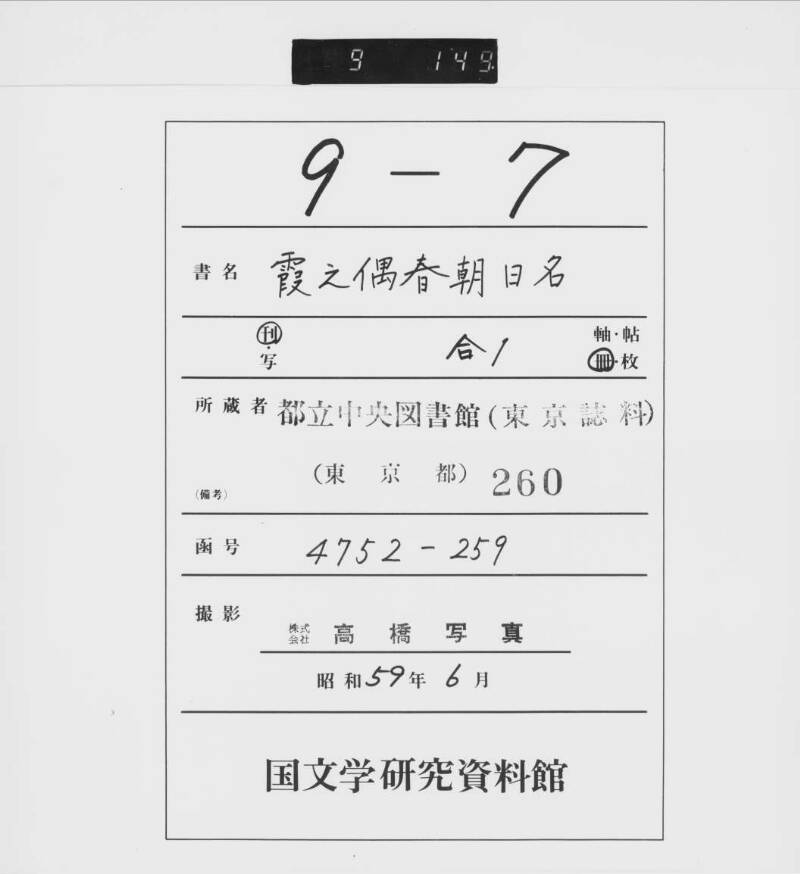 9 149.
9-7
書名 霞之偶春朝日名
刊・写 合1 軸・帖 冊・枚
所蔵者 都立中央図書館(東京誌料)
(備考) (東京都) 260
函号 4752-259
撮影 株式会社 高橋写真
昭和59年6月
国文学研究資料館